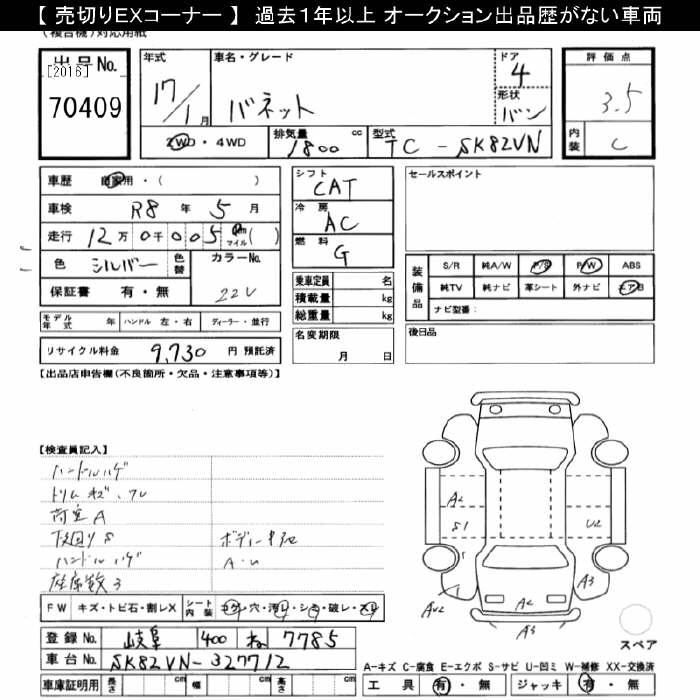 【 売切りEXコーナー 】 過去1年以上 オークション出品歴がない車両
(複合機)対応用紙
出品No.
[2016]
70409
年式
17/1月
車名・グレード
バネット
ドア
4
形状
バン
評価点
3.5
内装
C
2WD・4WD
排気量 1800 cc
型式 TC-SK82VN
車歴 自家用・( )
車検 R8年5月
走行 12万0千005 Km マイル( )
色 シルバー 色替
カラーNo. 22V
保証書 有・無
シフト
CAT
冷房
AC
燃料
G
乗車定員 名
積載量 kg
総重量 kg
名変期限
月 日
セールスポイント
装備品
S/R 純A/W P/S P/W ABS
純TV 純ナビ 革シート 外ナビ エアB
ナビ型番:
後日品
モデル年式 年 ハンドル 左・右 ディーラー・並行
リサイクル料金 9,730 円 預託済
【出品店申告欄(不良箇所・欠品・注意事項等)】
【検査員記入】
ハンドルハゲ
トリムキズ、ワレ
荷室A
下回りS
ボディーキズ
ハンドルハゲ
A・U
座席数3
FW キズ・トビ石・割レX
シート内装 コゲ・穴・汚レ・シミ・破レ・スレ
登録No. 岐阜 400 ね 7785
車台No. SK82VN-327712
車庫証明用 長さ cm 幅 cm 高さ cm
A2
S1
U2
AU2
A2
A3
A3
スペア
A-キズ C-腐食 E-エクボ S-サビ U-凹ミ W-補修 XX-交換済
工具 有・無 ジャッキ 有・無